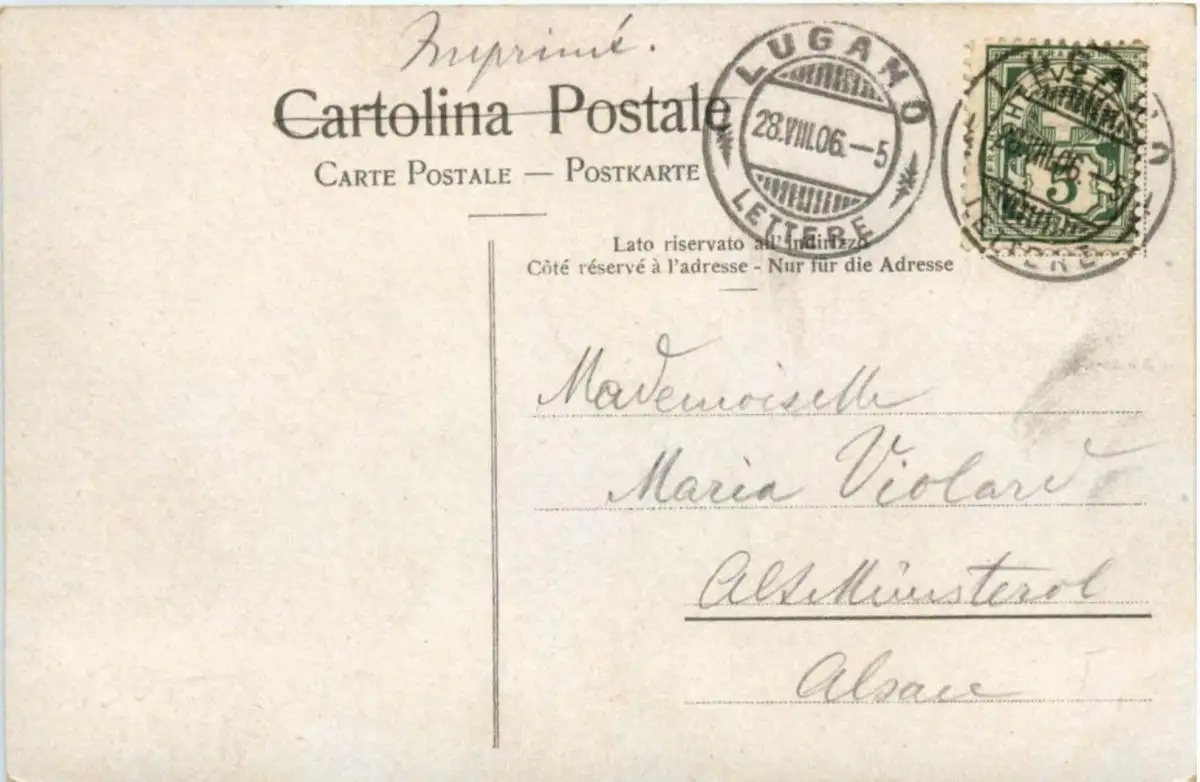 Imprimé.
Cartolina Postale
CARTE POSTALE — POSTKARTE
LUGANO
28.VIII.06.—5
LETTERE
HELVETIA
LUGANO
28.VIII.06.—5
5
LETTERE
Lato riservato all'Indirizzo
Côté réservé à l'adresse - Nur für die Adresse
Mademoiselle
Maria Violard
AltMünsterol
Alsace